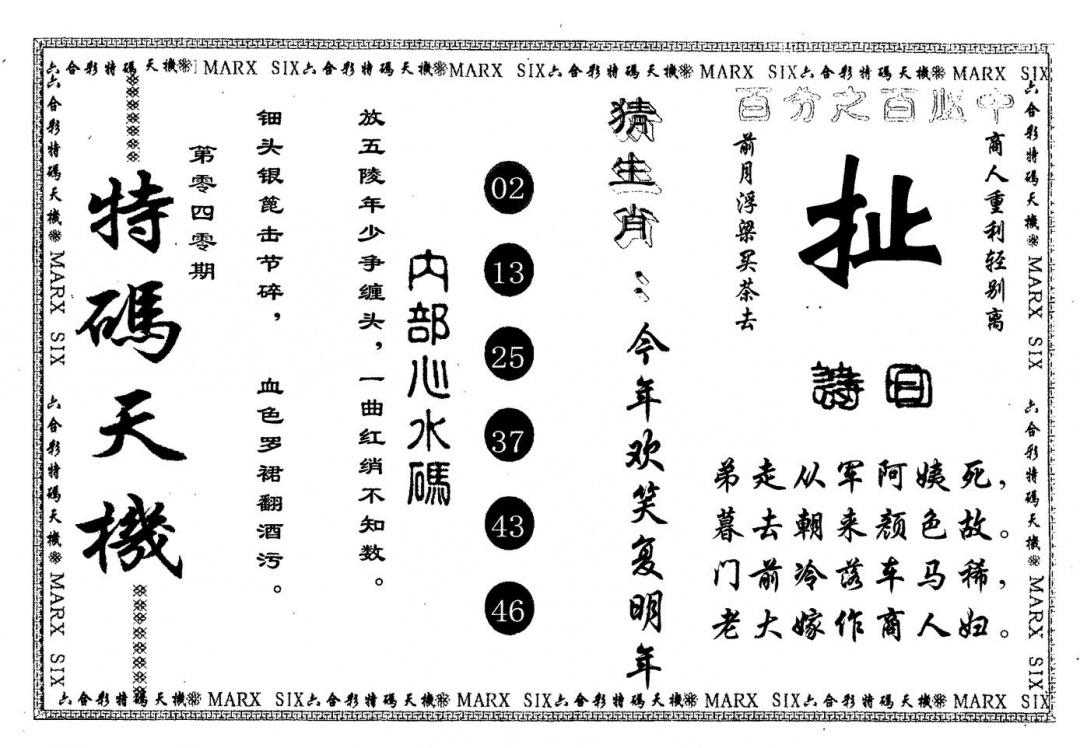 六合彩特碼天機❊ MARX SIX六合彩特碼天機❊MARX SIX六合彩特碼天機❊ MARX SIX六合彩特碼天機❊ MARX SIX
六合彩特碼天機❊ MARX SIX 六合彩特碼天機❊ MARX SIX
百分之百必中
商人重利轻别离
扯
前月浮梁买茶去
詩曰
弟走从军阿姨死，
暮去朝来颜色故。
门前冷落车马稀，
老大嫁作商人妇。
猜生肖：今年欢笑复明年
02
13
25
37
43
46
内部心水碼
放五陵年少争缠头，一曲红绡不知数。
钿头银篦击节碎，血色罗裙翻酒污。
第零四零期
特碼天機
六合彩特碼天機❊ MARX SIX 六合彩特碼天機❊ MARX SIX
六合彩特碼天機❊ MARX SIX六合彩特碼天機❊ MARX SIX六合彩特碼天機❊ MARX SIX六合彩特碼天機❊ MARX SIX